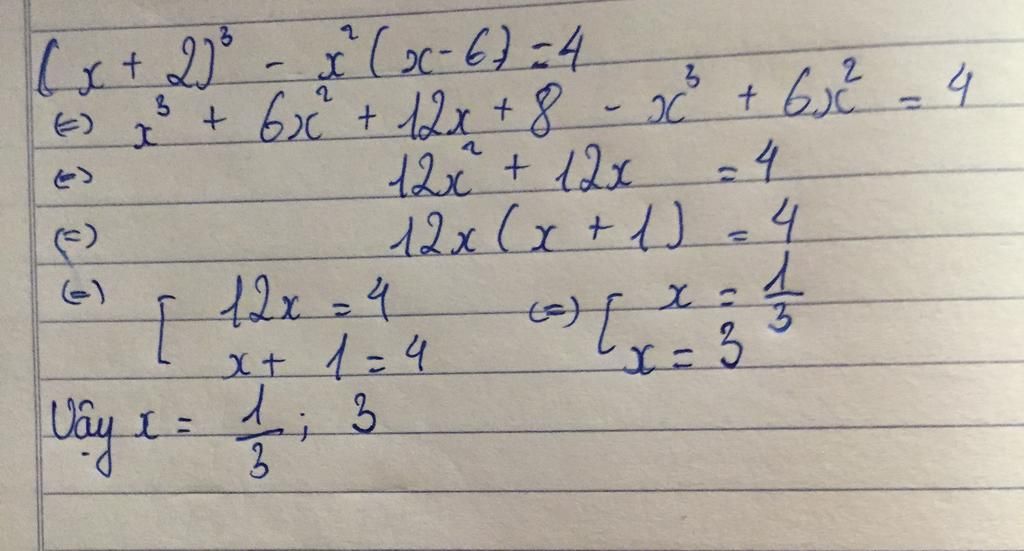 (x + 2)³ - x²(x - 6) = 4
(=) x³ + 6x² + 12x + 8 - x³ + 6x² = 4
(=) 12x² + 12x = 4
(=) 12x(x + 1) = 4
(=) [ 12x = 4 (=) [ x = 1/3
x + 1 = 4 x = 3
Vậy x = 1/3 ; 3